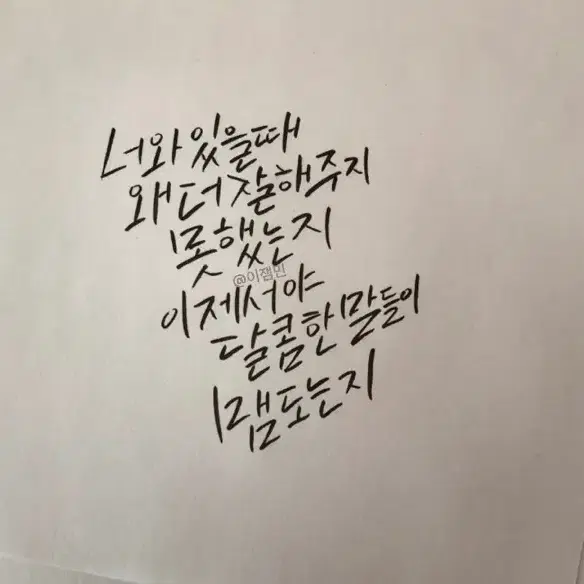 너와 있을 때
왜 더 잘해주지
못했는지
@이잼민
이제서야
달콤한 말들이
맴도는지